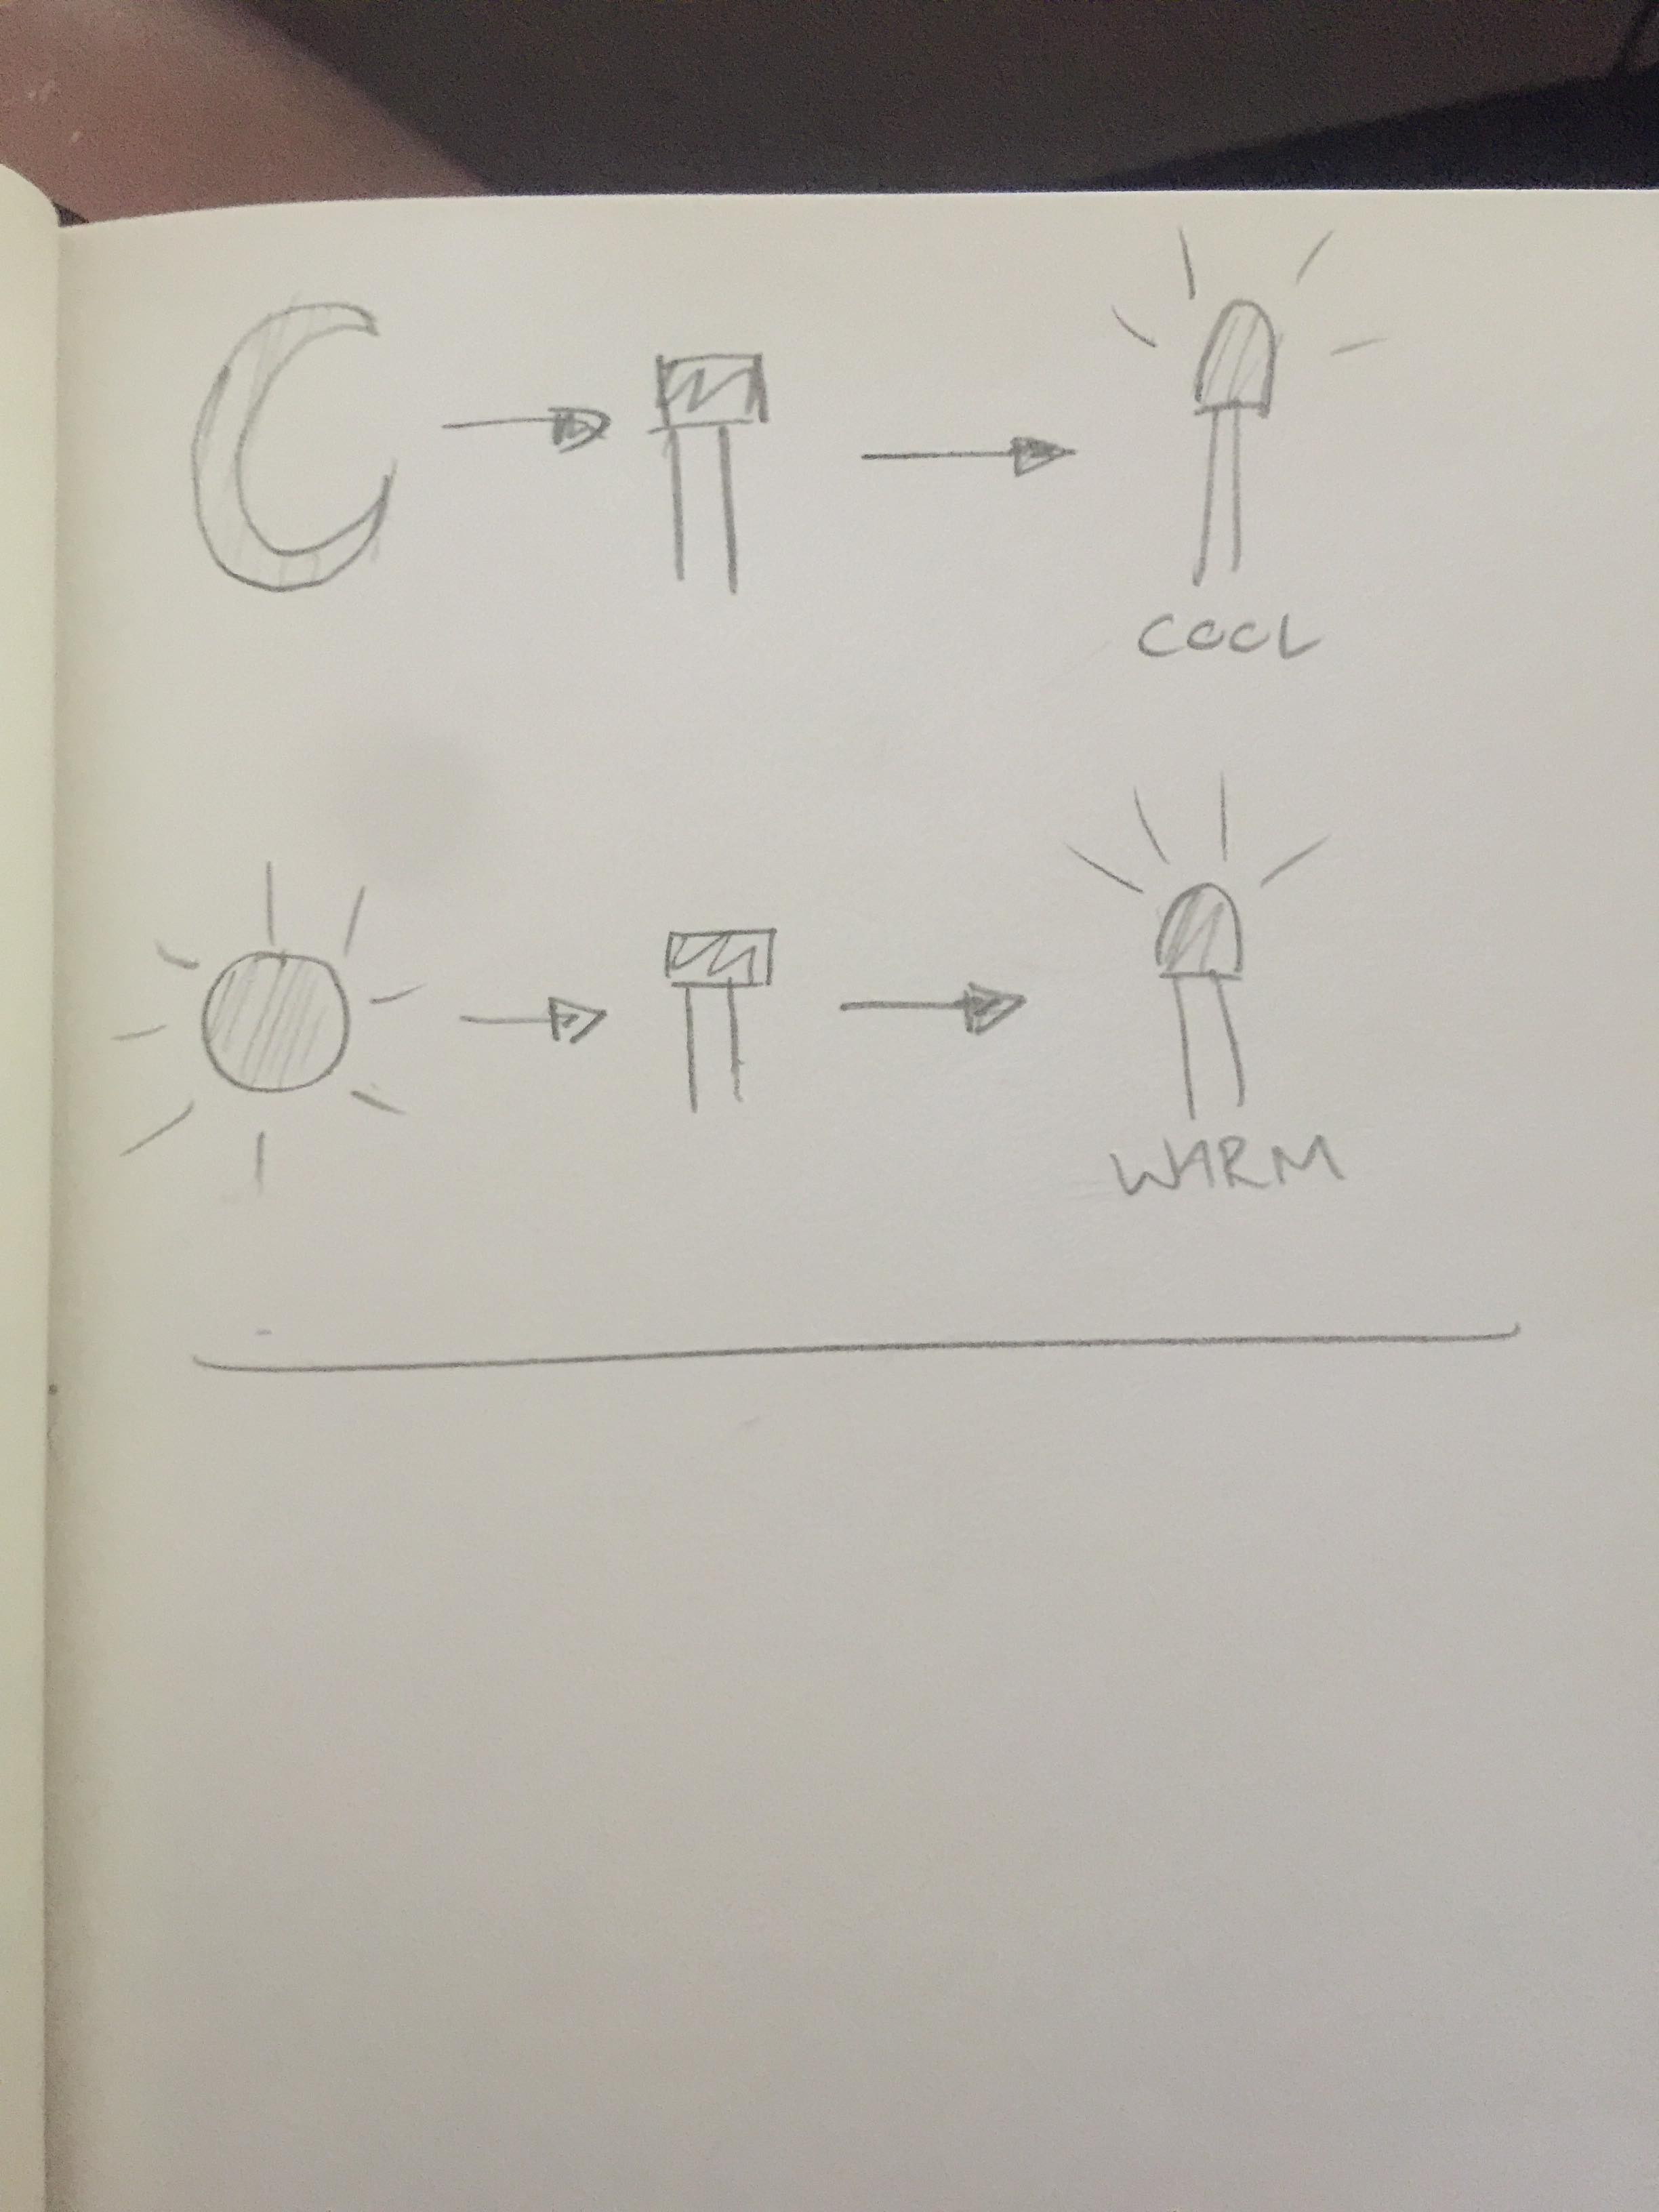 COOL
WARM